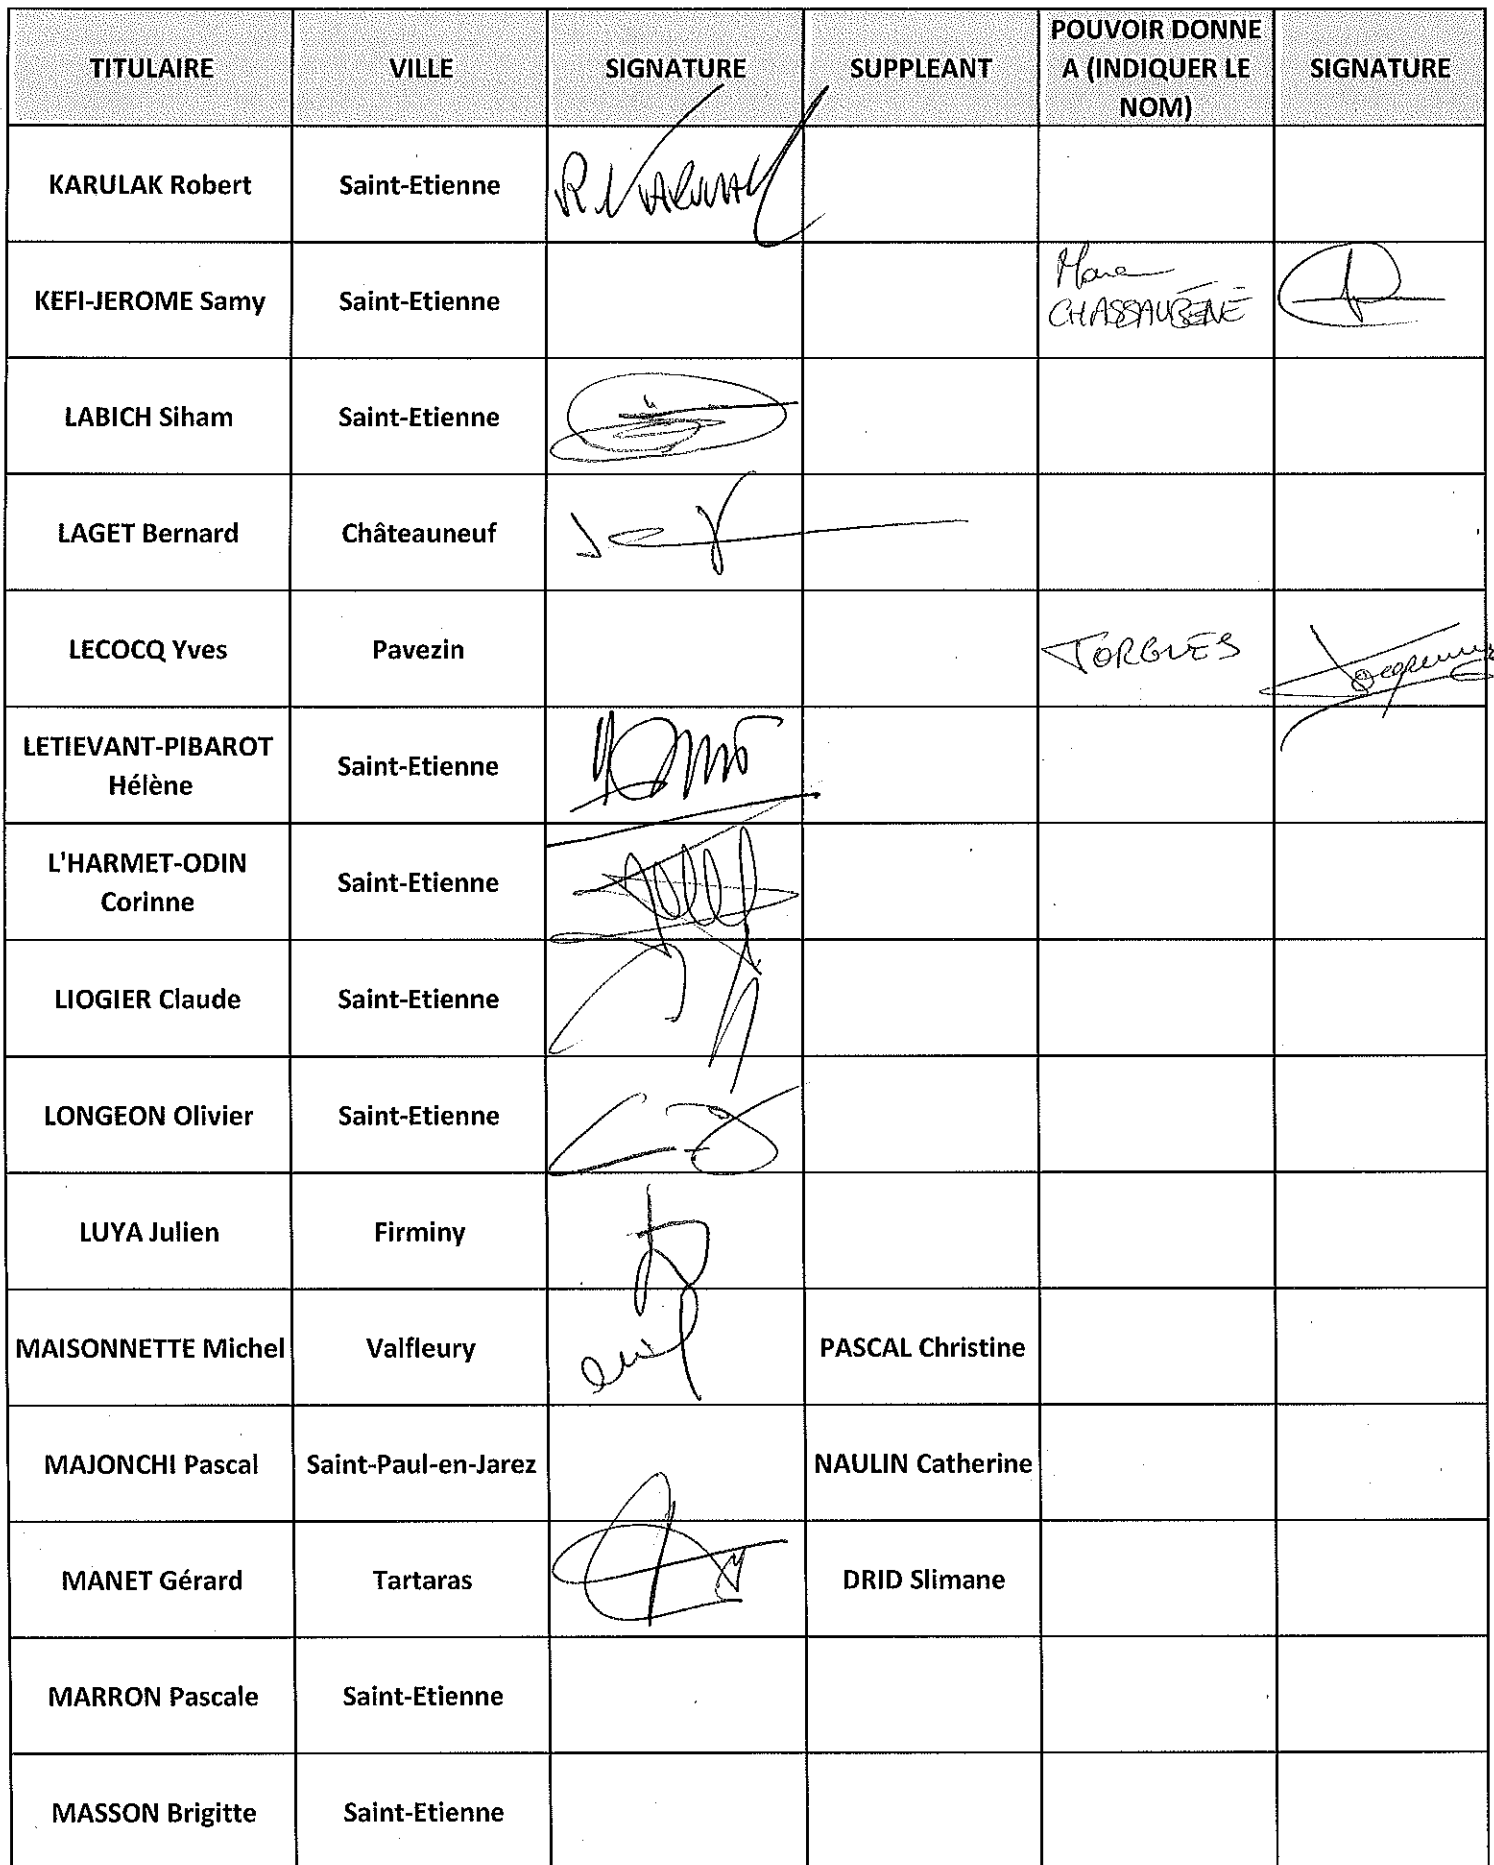 TITULAIRE
VILLE
SIGNATURE
SUPPLEANT
POUVOIR DONNE
A (INDIQUER LE
NOM)
SIGNATURE
KARULAK Robert
Saint-Etienne
R. KARULAK
KEFI-JEROME Samy
Saint-Etienne
CHASSAUBÉNÉ
LABICH Siham
Saint-Etienne
LAGET Bernard
Châteauneuf
LECOCQ Yves
Pavezin
TORGUES
LETIEVANT-PIBAROT
Hélène
Saint-Etienne
L'HARMET-ODIN
Corinne
Saint-Etienne
LIOGIER Claude
Saint-Etienne
LONGEON Olivier
Saint-Etienne
LUYA Julien
Firminy
MAISONNETTE Michel
Valfleury
PASCAL Christine
MAJONCHI Pascal
Saint-Paul-en-Jarez
NAULIN Catherine
MANET Gérard
Tartaras
DRID Slimane
MARRON Pascale
Saint-Etienne
MASSON Brigitte
Saint-Etienne